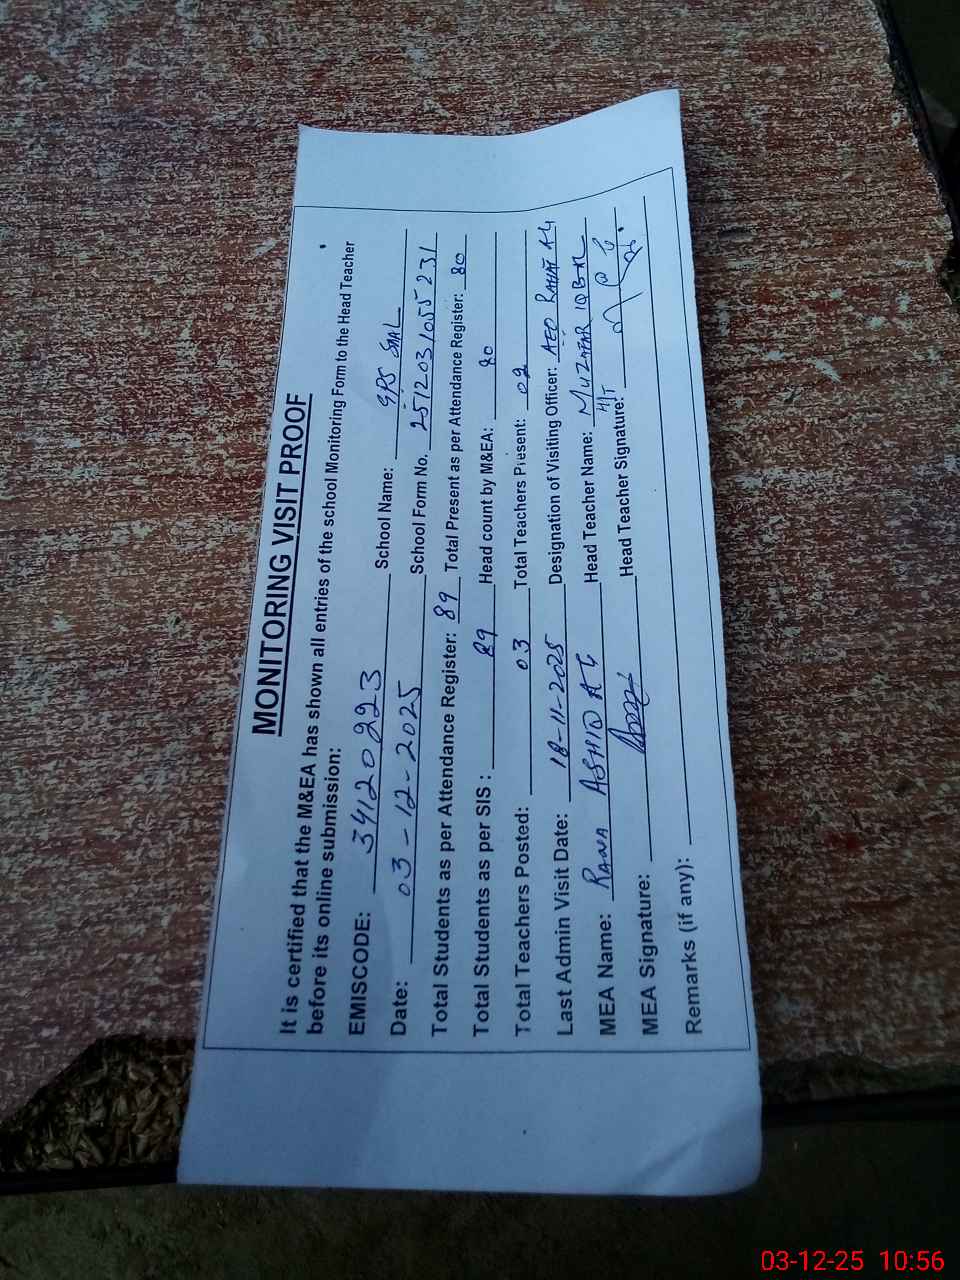 MONITORING VISIT PROOF
It is certified that the M&EA has shown all entries of the school Monitoring Form to the Head Teacher
before its online submission:
EMISCODE: 34120223 School Name: GPS
Date: 03-12-2025 School Form No. 2512031055231
Total Students as per Attendance Register: 89 Total Present as per Attendance Register: 80
Total Students as per SIS: 89 Head count by M&EA: 80
Total Teachers Posted: 03 Total Teachers Present: 02
Last Admin Visit Date: 18-11-2025 Designation of Visiting Officer: AEO
MEA Name: RANA Head Teacher Name: MUZAFAR IQBAL
MEA Signature: Head Teacher Signature: H/T
Remarks (if any):
03-12-25 10:56